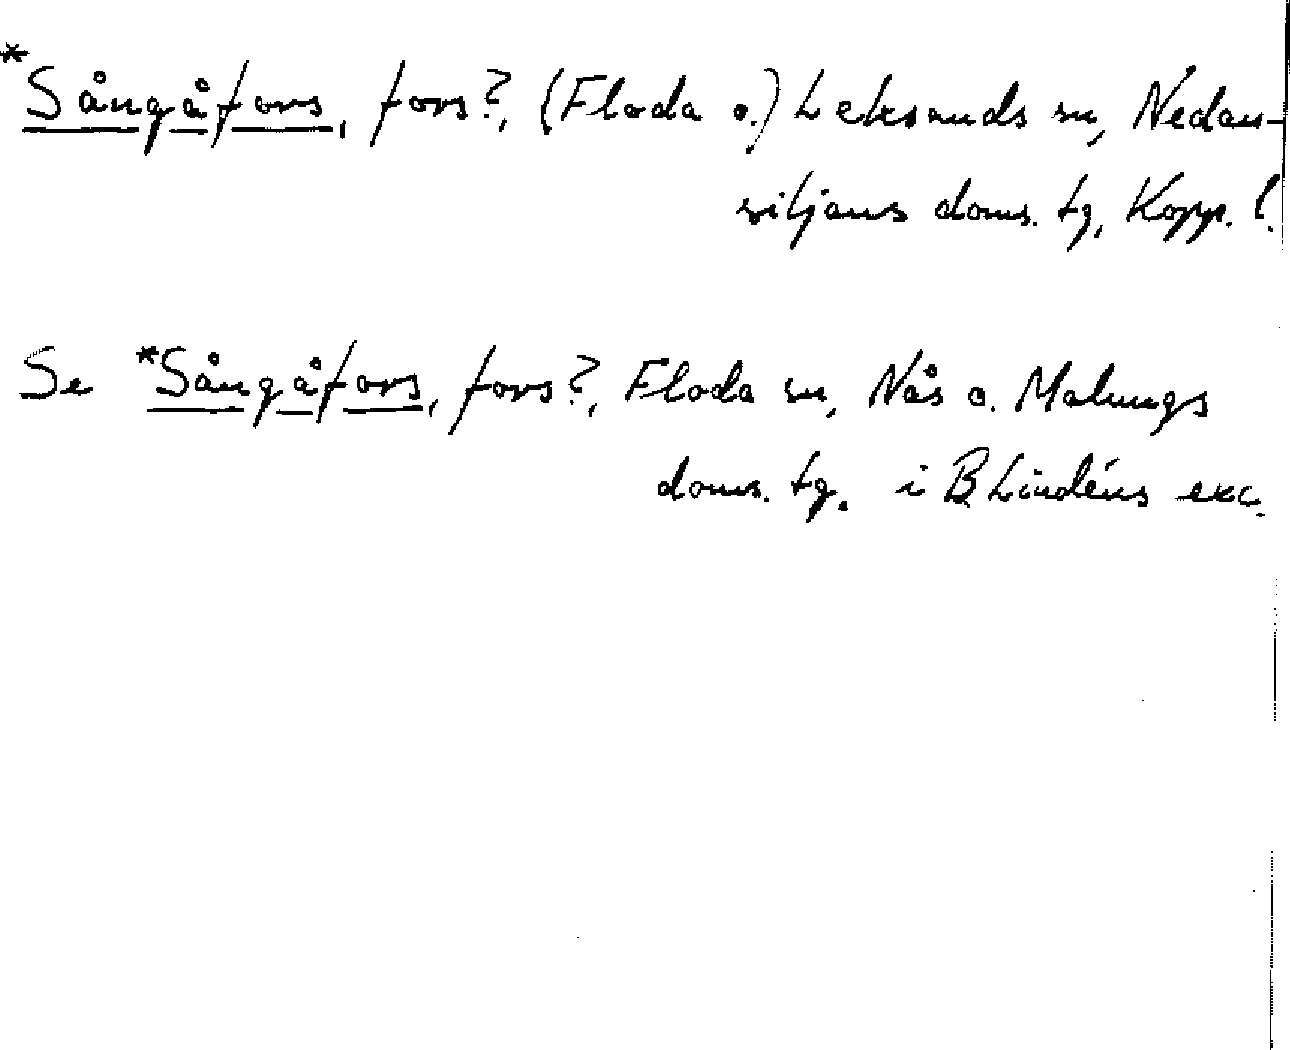 *Sångåfors, fors?, (Floda o.) Leksands sn, Nedan-
siljans doms. tg, Kopp. l.
Se *Sångåfors, fors?, Floda sn, Nås o. Malungs
doms. tg. i B Lindéns exc.